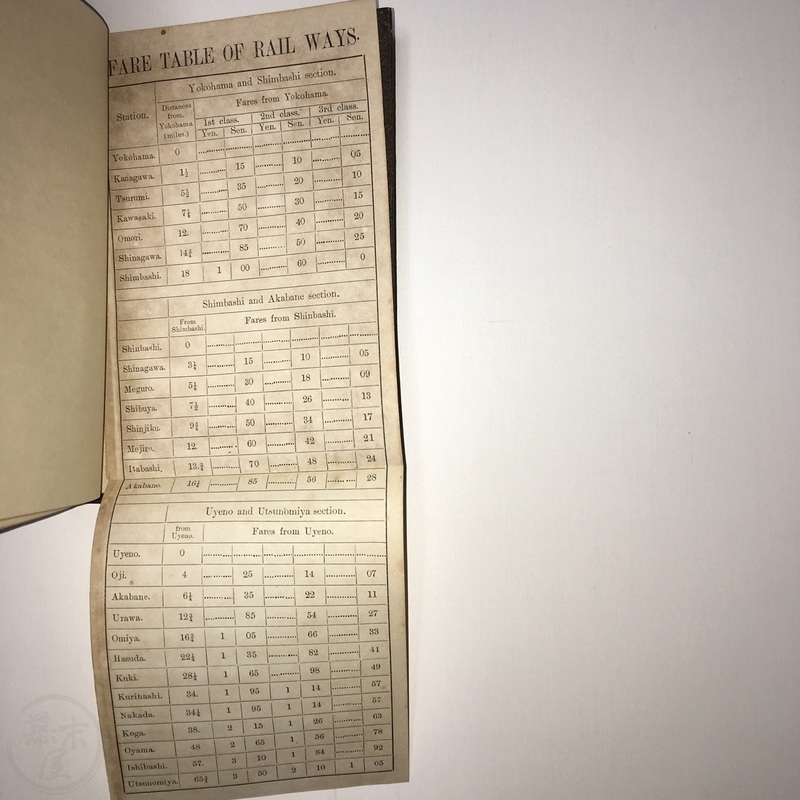 FARE TABLE OF RAIL WAYS.
Yokohama and Shimbashi section.
Station. Distances from. Yokohama (miles.) Fares from Yokohama.
1st class. 2nd class. 3rd class.
Yen. Sen. Yen. Sen. Yen. Sen.
Yokohama. 0
Kanagawa. 1½ 15 10 05
Tsurumi. 5½ 35 20 10
Kawasaki. 7¼ 50 30 15
Omori. 12. 70 40 20
Shinagawa. 14¾ 85 50 25
Shimbashi. 18 1 00 60 0
Shimbashi and Akabane section.
From Shimbashi. Fares from Shinbashi.
Shinbashi. 0
Shinagawa. 3¼ 15 10 05
Meguro. 5¼ 30 18 09
Shibuya. 7½ 40 26 13
Shinjiku. 9¾ 50 34 17
Mejiro. 12. 60 42 21
Itabashi. 13.¾ 70 48 24
Akabane. 16¼ 85 56 28
Uyeno and Utsunomiya section.
from Uyeno. Fares from Uyeno.
Uyeno. 0
Oji. 4 25 14 07
Akabane. 6¼ 35 22 11
Urawa. 12¾ 85 54 27
Omiya. 16¾ 1 05 66 33
Hasuda. 22¼ 1 35 82 41
Kuki. 28¼ 1 65 98 49
Kurihashi. 34. 1 95 1 14 57
Nakada. 34¼ 1 95 1 14 57
Koga. 38. 2 15 1 26 63
Oyama. 48 2 65 1 56 78
Ishibashi. 57. 3 10 1 84 92
Utsunomiya. 65¾ 3 50 2 10 1 05
幕末屋